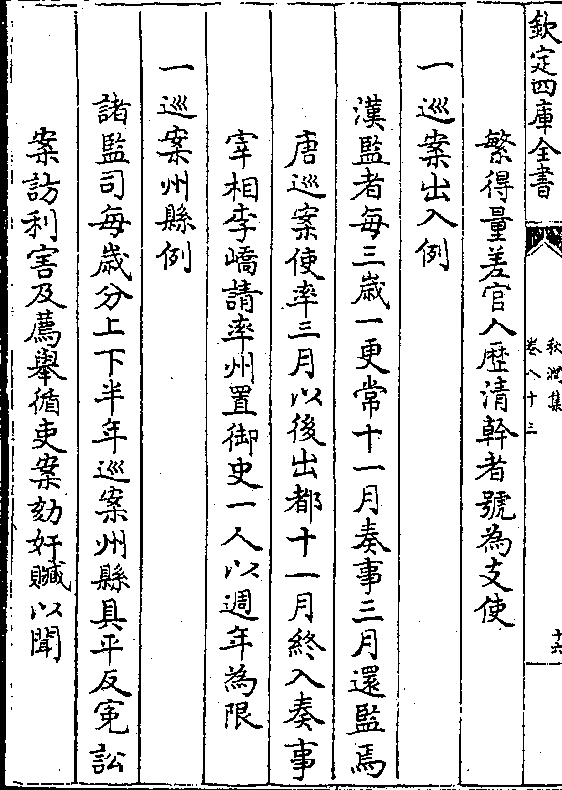 欽定四庫全書
秋澗集
卷八十三
十六
繁得量差官入歷清幹者號為支使
一巡案出入例
漢監者每三歲一更常十一月奏事三月還監焉
唐巡案使率三月以後出都十一月終入奏事
宰相李嶠請率州置御史一人以週年為限
一巡案州縣例
諸監司每歲分上下半年巡案州縣具平反寃訟
案訪利害及薦舉循吏案劾奸贓以聞